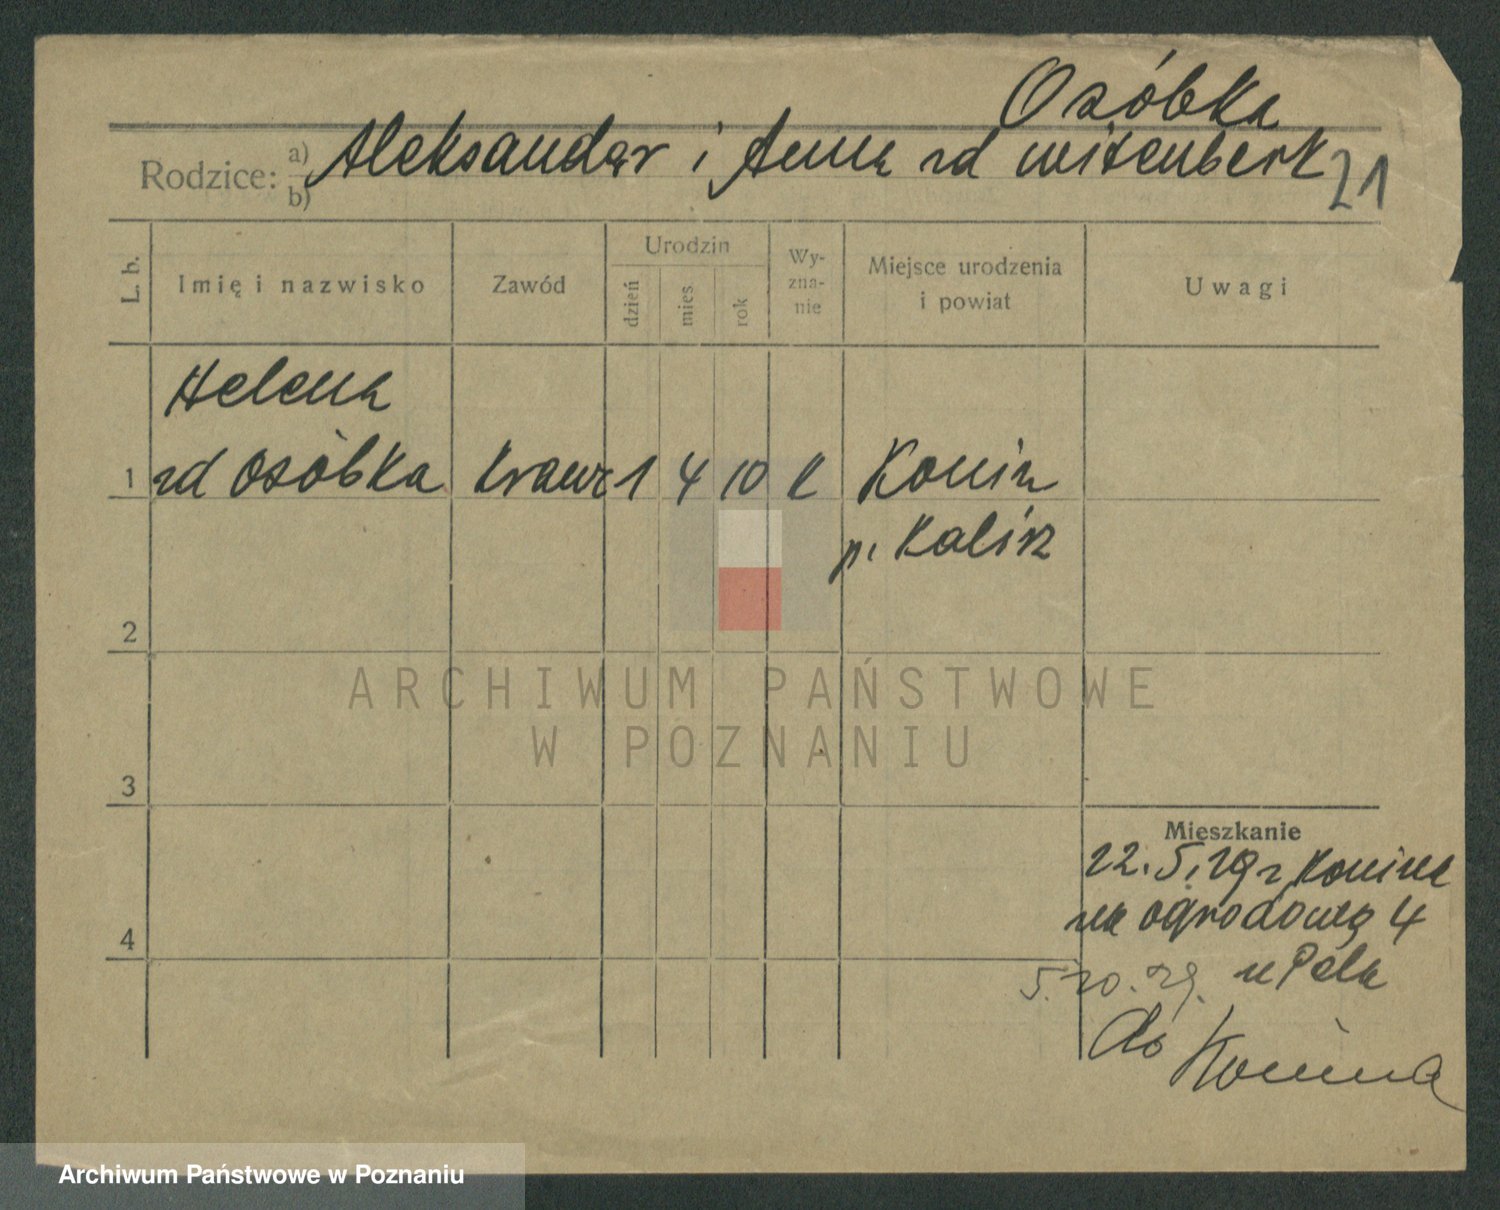 Osóbka
Rodzice: a) b) Aleksander i Anna zd Witenberk 21
L. b.
Imię i nazwisko
Zawód
Urodzin
dzień
mies
rok
Wy-
zna-
nie
Miejsce urodzenia
i powiat
Uwagi
Helena
1 zd Osóbka Krawc 1 4 10 k Konin
p. Kalisz
2
3
4
ARCHIWUM PAŃSTWOWE
W POZNANIU
Mieszkanie
22.5.29 z Konina
na Ogrodową 4
u Pela
5.10.29.
do Konina
Archiwum Państwowe w Poznaniu